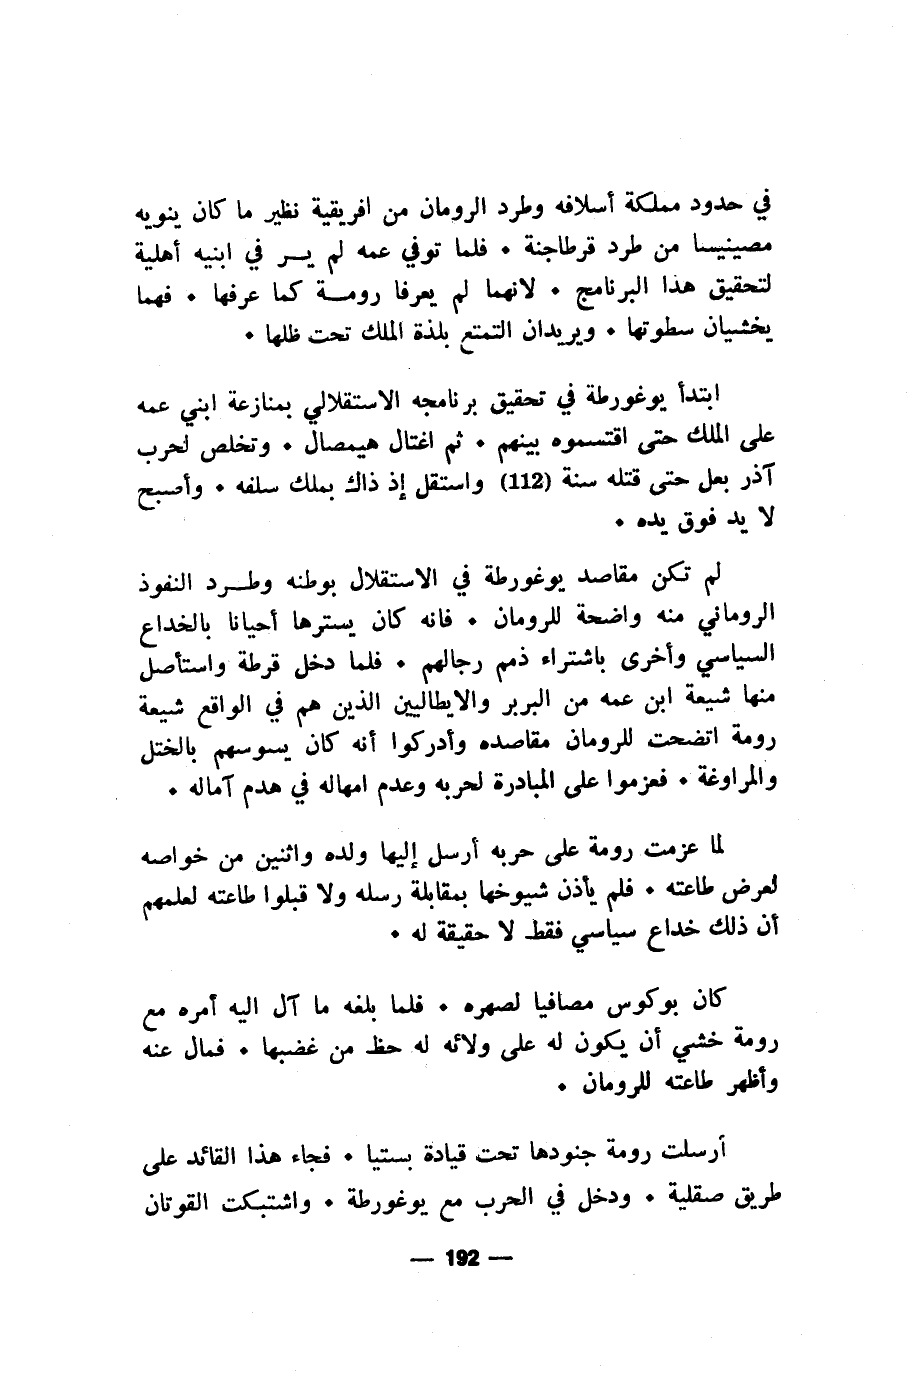 في حدود مملكة أسلافه وطرد الرومان من افريقية نظير ما كان ينويه
مصينيسا من طرد قرطاجنة • فلما توفي عمه لم يــر في ابنيه أهلية
لتحقيق هذا البرنامج • لانهما لم يعرفا رومــة كما عرفها • فهما
يخشيان سطوتها • ويريدان التمتع بلذة الملك تحت ظلها •
ابتدأ يوغورطة في تحقيق برنامجه الاستقلالي بمنازعة ابني عمه
على الملك حتى اقتسموه بينهم • ثم اغتال هيمصال • وتخلص لحرب
آذر بعل حتى قتله سنة (112) واستقل إذ ذاك بملك سلفه • وأصبح
لا يد فوق يده •
لم تكن مقاصد يوغورطة في الاستقلال بوطنه وطــرد النفوذ
الروماني منه واضحة للرومان • فانه كان يسترها أحيانا بالخداع
السياسي وأخرى باشتراء ذمم رجالهم • فلما دخل قرطة واستأصل
منها شيعة ابن عمه من البربر والايطاليين الذين هم في الواقع شيعة
رومة اتضحت للرومان مقاصده وأدركوا أنه كان يسوسهم بالختل
والمراوغة • فعزموا على المبادرة لحربه وعدم امهاله في هدم آماله •
لما عزمت رومة على حربه أرسل إليها ولده واثنين من خواصه
لعرض طاعته • فلم يأذن شيوخها بمقابلة رسله ولا قبلوا طاعته لعلمهم
أن ذلك خداع سياسي فقط لا حقيقة له •
كان بوكوس مصافيا لصهره • فلما بلغه ما آل اليه أمره مع
رومة خشي أن يكون له على ولائه له حظ من غضبها • فمال عنه
وأظهر طاعته للرومان •
أرسلت رومة جنودها تحت قيادة بستيا • فجاء هذا القائد على
طريق صقلية • ودخل في الحرب مع يوغورطة • واشتبكت القوتان
— 192 —